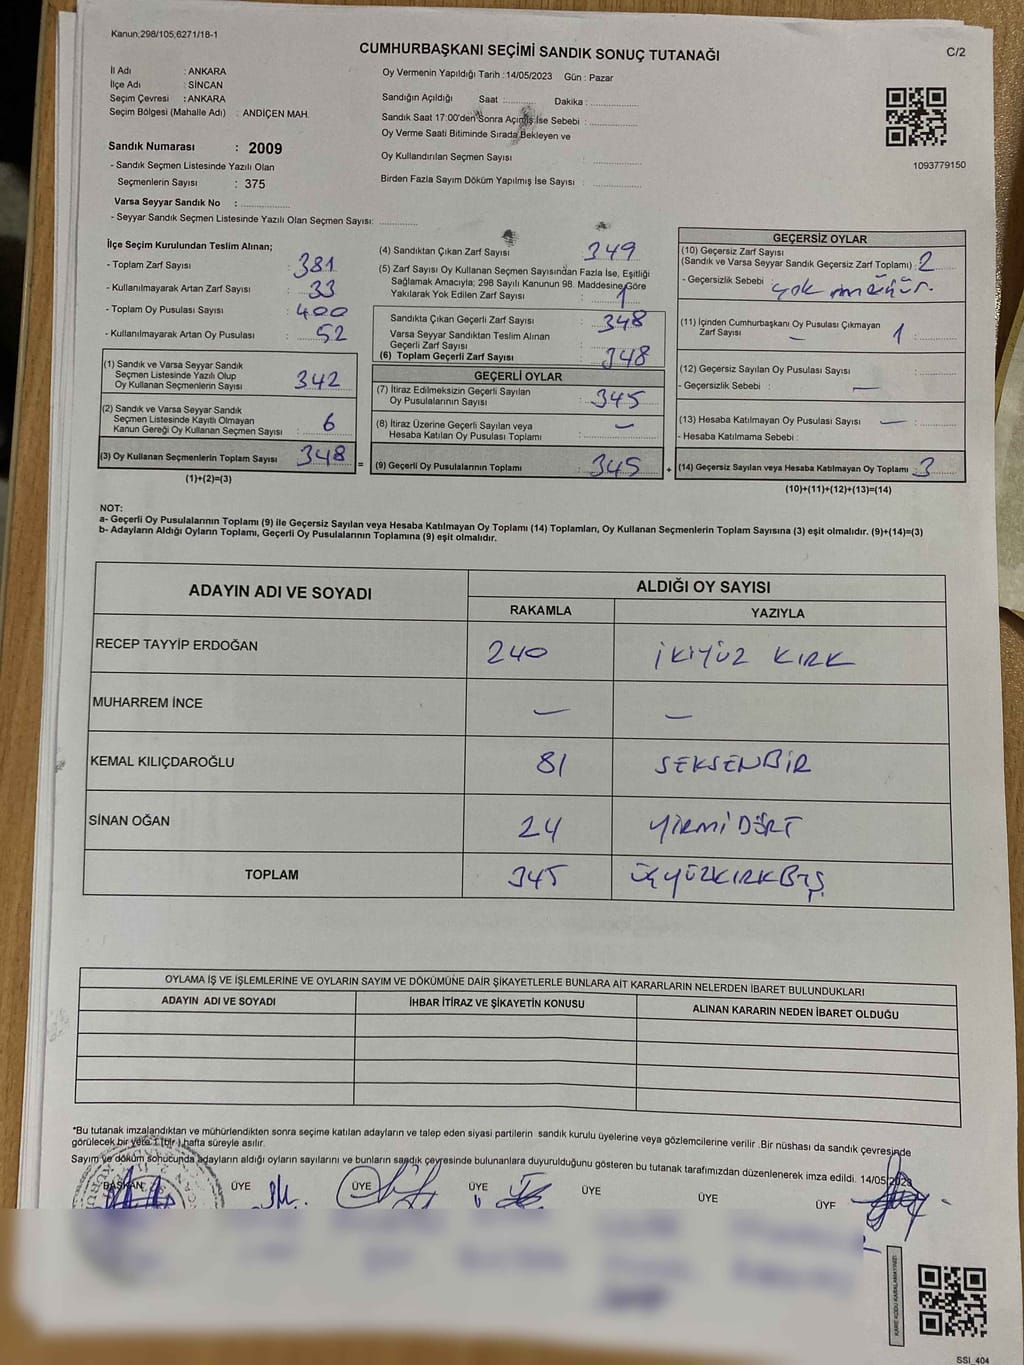 Kanun;298/105,6271/18-1
CUMHURBAŞKANI SEÇİMİ SANDIK SONUÇ TUTANAĞI
C/2
İl Adı : ANKARA
İlçe Adı : SİNCAN
Seçim Çevresi : ANKARA
Seçim Bölgesi (Mahalle Adı) : ANDİÇEN MAH.
Sandık Numarası : 2009
- Sandık Seçmen Listesinde Yazılı Olan
Seçmenlerin Sayısı : 375
Varsa Seyyar Sandık No : ................
- Seyyar Sandık Seçmen Listesinde Yazılı Olan Seçmen Sayısı: ............
Oy Vermenin Yapıldığı Tarih : 14/05/2023 Gün : Pazar
Sandığın Açıldığı Saat :.......... Dakika : ................
Sandık Saat 17:00'den Sonra Açılmış İse Sebebi : ................
Oy Verme Saati Bitiminde Sırada Bekleyen ve
Oy Kullandırılan Seçmen Sayısı : ................
Birden Fazla Sayım Döküm Yapılmış İse Sayısı : ................
1093779150
İlçe Seçim Kurulundan Teslim Alınan;
- Toplam Zarf Sayısı : 381
- Kullanılmayarak Artan Zarf Sayısı : 33
- Toplam Oy Pusulası Sayısı : 400
- Kullanılmayarak Artan Oy Pusulası : 52
(1) Sandık ve Varsa Seyyar Sandık
Seçmen Listesinde Yazılı Olup
Oy Kullanan Seçmenlerin Sayısı : 342
(2) Sandık ve Varsa Seyyar Sandık
Seçmen Listesinde Kayıtlı Olmayan
Kanun Gereği Oy Kullanan Seçmen Sayısı : 6
(3) Oy Kullanan Seçmenlerin Toplam Sayısı : 348
(1)+(2)=(3)
=
(4) Sandıktan Çıkan Zarf Sayısı : 349
(5) Zarf Sayısı Oy Kullanan Seçmen Sayısından Fazla İse, Eşitliği
Sağlamak Amacıyla; 298 Sayılı Kanunun 98. Maddesine Göre
Yakılarak Yok Edilen Zarf Sayısı : 1
Sandıkta Çıkan Geçerli Zarf Sayısı : 348
Varsa Seyyar Sandıktan Teslim Alınan
Geçerli Zarf Sayısı :
(6) Toplam Geçerli Zarf Sayısı : 348
GEÇERLİ OYLAR
(7) İtiraz Edilmeksizin Geçerli Sayılan
Oy Pusulalarının Sayısı : 345
(8) İtiraz Üzerine Geçerli Sayılan veya
Hesaba Katılan Oy Pusulası Toplamı : —
(9) Geçerli Oy Pusulalarının Toplamı : 345
+
GEÇERSİZ OYLAR
(10) Geçersiz Zarf Sayısı
(Sandık ve Varsa Seyyar Sandık Geçersiz Zarf Toplamı) : 2
- Geçersizlik Sebebi : Çok mühür.
(11) İçinden Cumhurbaşkanı Oy Pusulası Çıkmayan
Zarf Sayısı — 1 :
(12) Geçersiz Sayılan Oy Pusulası Sayısı :
- Geçersizlik Sebebi : —
(13) Hesaba Katılmayan Oy Pusulası Sayısı — :
- Hesaba Katılmama Sebebi :
(14) Geçersiz Sayılan veya Hesaba Katılmayan Oy Toplamı : 3
(10)+(11)+(12)+(13)=(14)
NOT:
a- Geçerli Oy Pusulalarının Toplamı (9) ile Geçersiz Sayılan veya Hesaba Katılmayan Oy Toplamı (14) Toplamları, Oy Kullanan Seçmenlerin Toplam Sayısına (3) eşit olmalıdır. (9)+(14)=(3)
b- Adayların Aldığı Oyların Toplamı, Geçerli Oy Pusulalarının Toplamına (9) eşit olmalıdır.
ADAYIN ADI VE SOYADI
ALDIĞI OY SAYISI
RAKAMLA YAZIYLA
RECEP TAYYİP ERDOĞAN 240 İKİYÜZ KIRK
MUHARREM İNCE — —
KEMAL KILIÇDAROĞLU 81 SEKSENBİR
SİNAN OĞAN 24 YİRMİDÖRT
TOPLAM 345 ÜÇYÜZKIRKBEŞ
OYLAMA İŞ VE İŞLEMLERİNE VE OYLARIN SAYIM VE DÖKÜMÜNE DAİR ŞİKAYETLERLE BUNLARA AİT KARARLARIN NELERDEN İBARET BULUNDUKLARI
ADAYIN ADI VE SOYADI İHBAR İTİRAZ VE ŞİKAYETİN KONUSU ALINAN KARARIN NEDEN İBARET OLDUĞU
*Bu tutanak imzalandıktan ve mühürlendikten sonra seçime katılan adayların ve talep eden siyasi partilerin sandık kurulu üyelerine veya gözlemcilerine verilir .Bir nüshası da sandık çevresinde
görülecek bir yere 1 (bir ) hafta süreyle asılır.
Sayım ve döküm sonucunda adayların aldığı oyların sayılarını ve bunların sandık çevresinde bulunanlara duyurulduğunu gösteren bu tutanak tarafımızdan düzenlenerek imza edildi. 14/05/2023
BAŞKAN ÜYE ÜYE ÜYE ÜYE ÜYE ÜYE
KARE KODU KARALAMAYINIZ!
SSİ_404